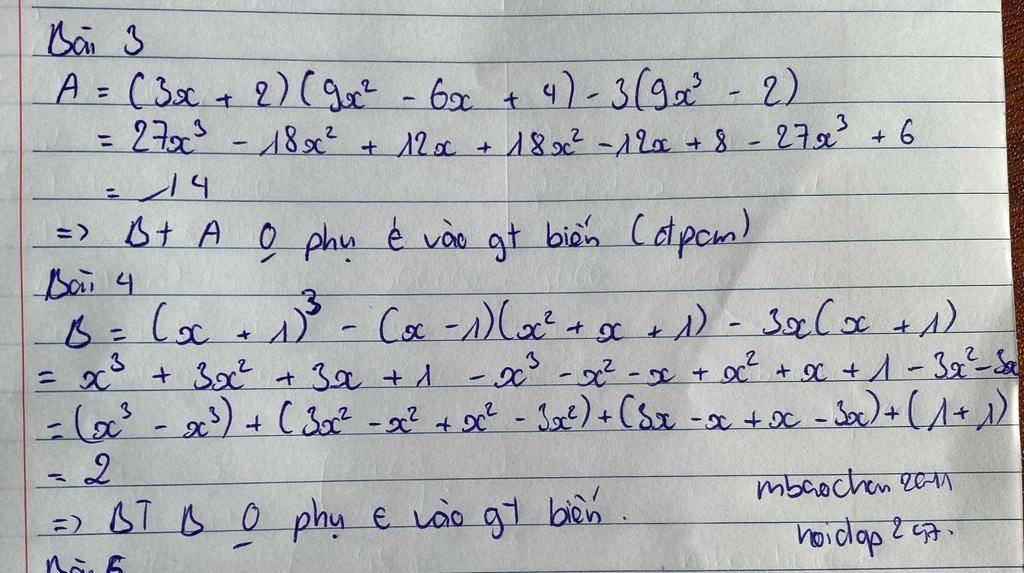 Bài 3
A = (3x + 2)(9x² - 6x + 4) - 3(9x³ - 2)
= 27x³ - 18x² + 12x + 18x² - 12x + 8 - 27x³ + 6
= 14
=> Bt A O̲ phụ ∈ vào gt biến (đpcm)
Bài 4
B = (x + 1)³ - (x - 1)(x² + x + 1) - 3x(x + 1)
= x³ + 3x² + 3x + 1 - x³ - x² - x + x² + x + 1 - 3x² - 3x
= (x³ - x³) + (3x² - x² + x² - 3x²) + (3x - x + x - 3x) + (1 + 1)
= 2
=> BT B O̲ phụ ∈ vào gt biến.
mbaochan 2011
hoidap 247.
Bài 5